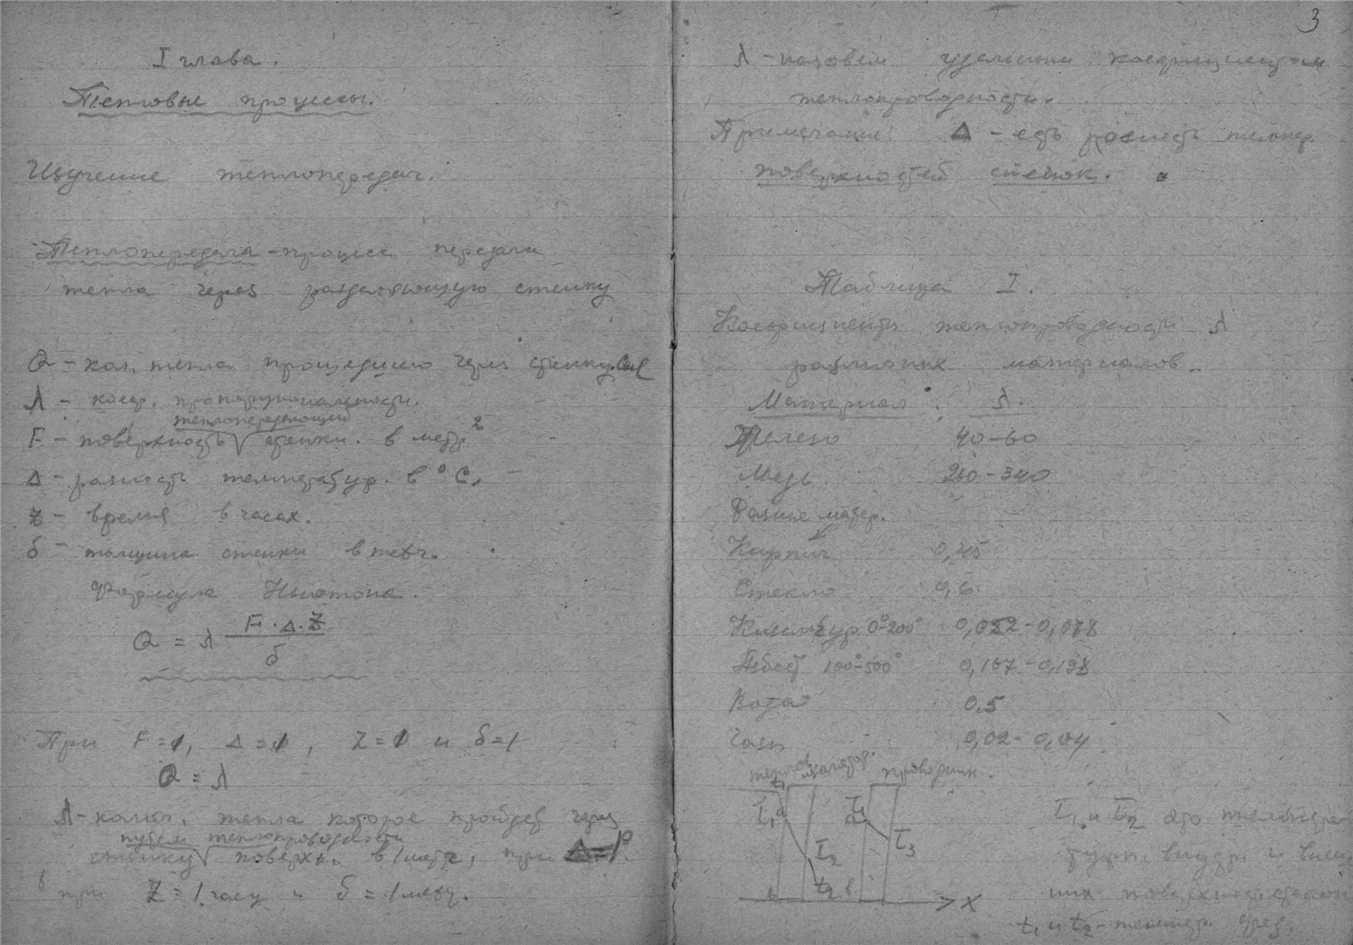 I глава.
Тепловые процессы.
Изучение теплопередач.
Теплопередача – процесс передачи
тепла через разделяющую стенку
Q – кол. тепла прошедшего через стенку. Cal
λ – коеф. пропорциональности.
теплопередающей
F – поверхность √ стенки. в метр²
Δ – разность температур. в °C.
Z – время в часах.
δ – толщина стенки в метр.
Формула Ньютона.
Q = λ F·Δ·Z / δ
При F=1, Δ=1, Z=1 и δ=1
Q = λ
λ – колич. тепла которое пройдет через
путем теплопроводности
стенку √ поверхн. в 1 метр, при Δ=1°.
при Z=1 часу и δ=1 метр.
3
λ – назовем удельным коефициентом
теплопроводности.
Примечание: Δ – есть разность темпер.
поверхностей стенок.
Таблица I.
Коефициенты теплопроводности λ
различных материалов.
Материал. λ.
Железо 40–60
Медь 260–340
Разные матер.
Кирпич 0,45
Стекло 0,6
Кизельгур 0°–200° 0,052–0,078
Асбест 100°–500° 0,167–0,198
Вода 0.5
Газы 0,02–0,04
теплов. изолятор. проводник.
t₁
T₁ a T₁ a
T₂ T₃
t₂ в
X
T₁ и T₂ это темпера
туры внутр. и внеш
них поверхност. сторон
t₁ и t₂ – темпер. сред.